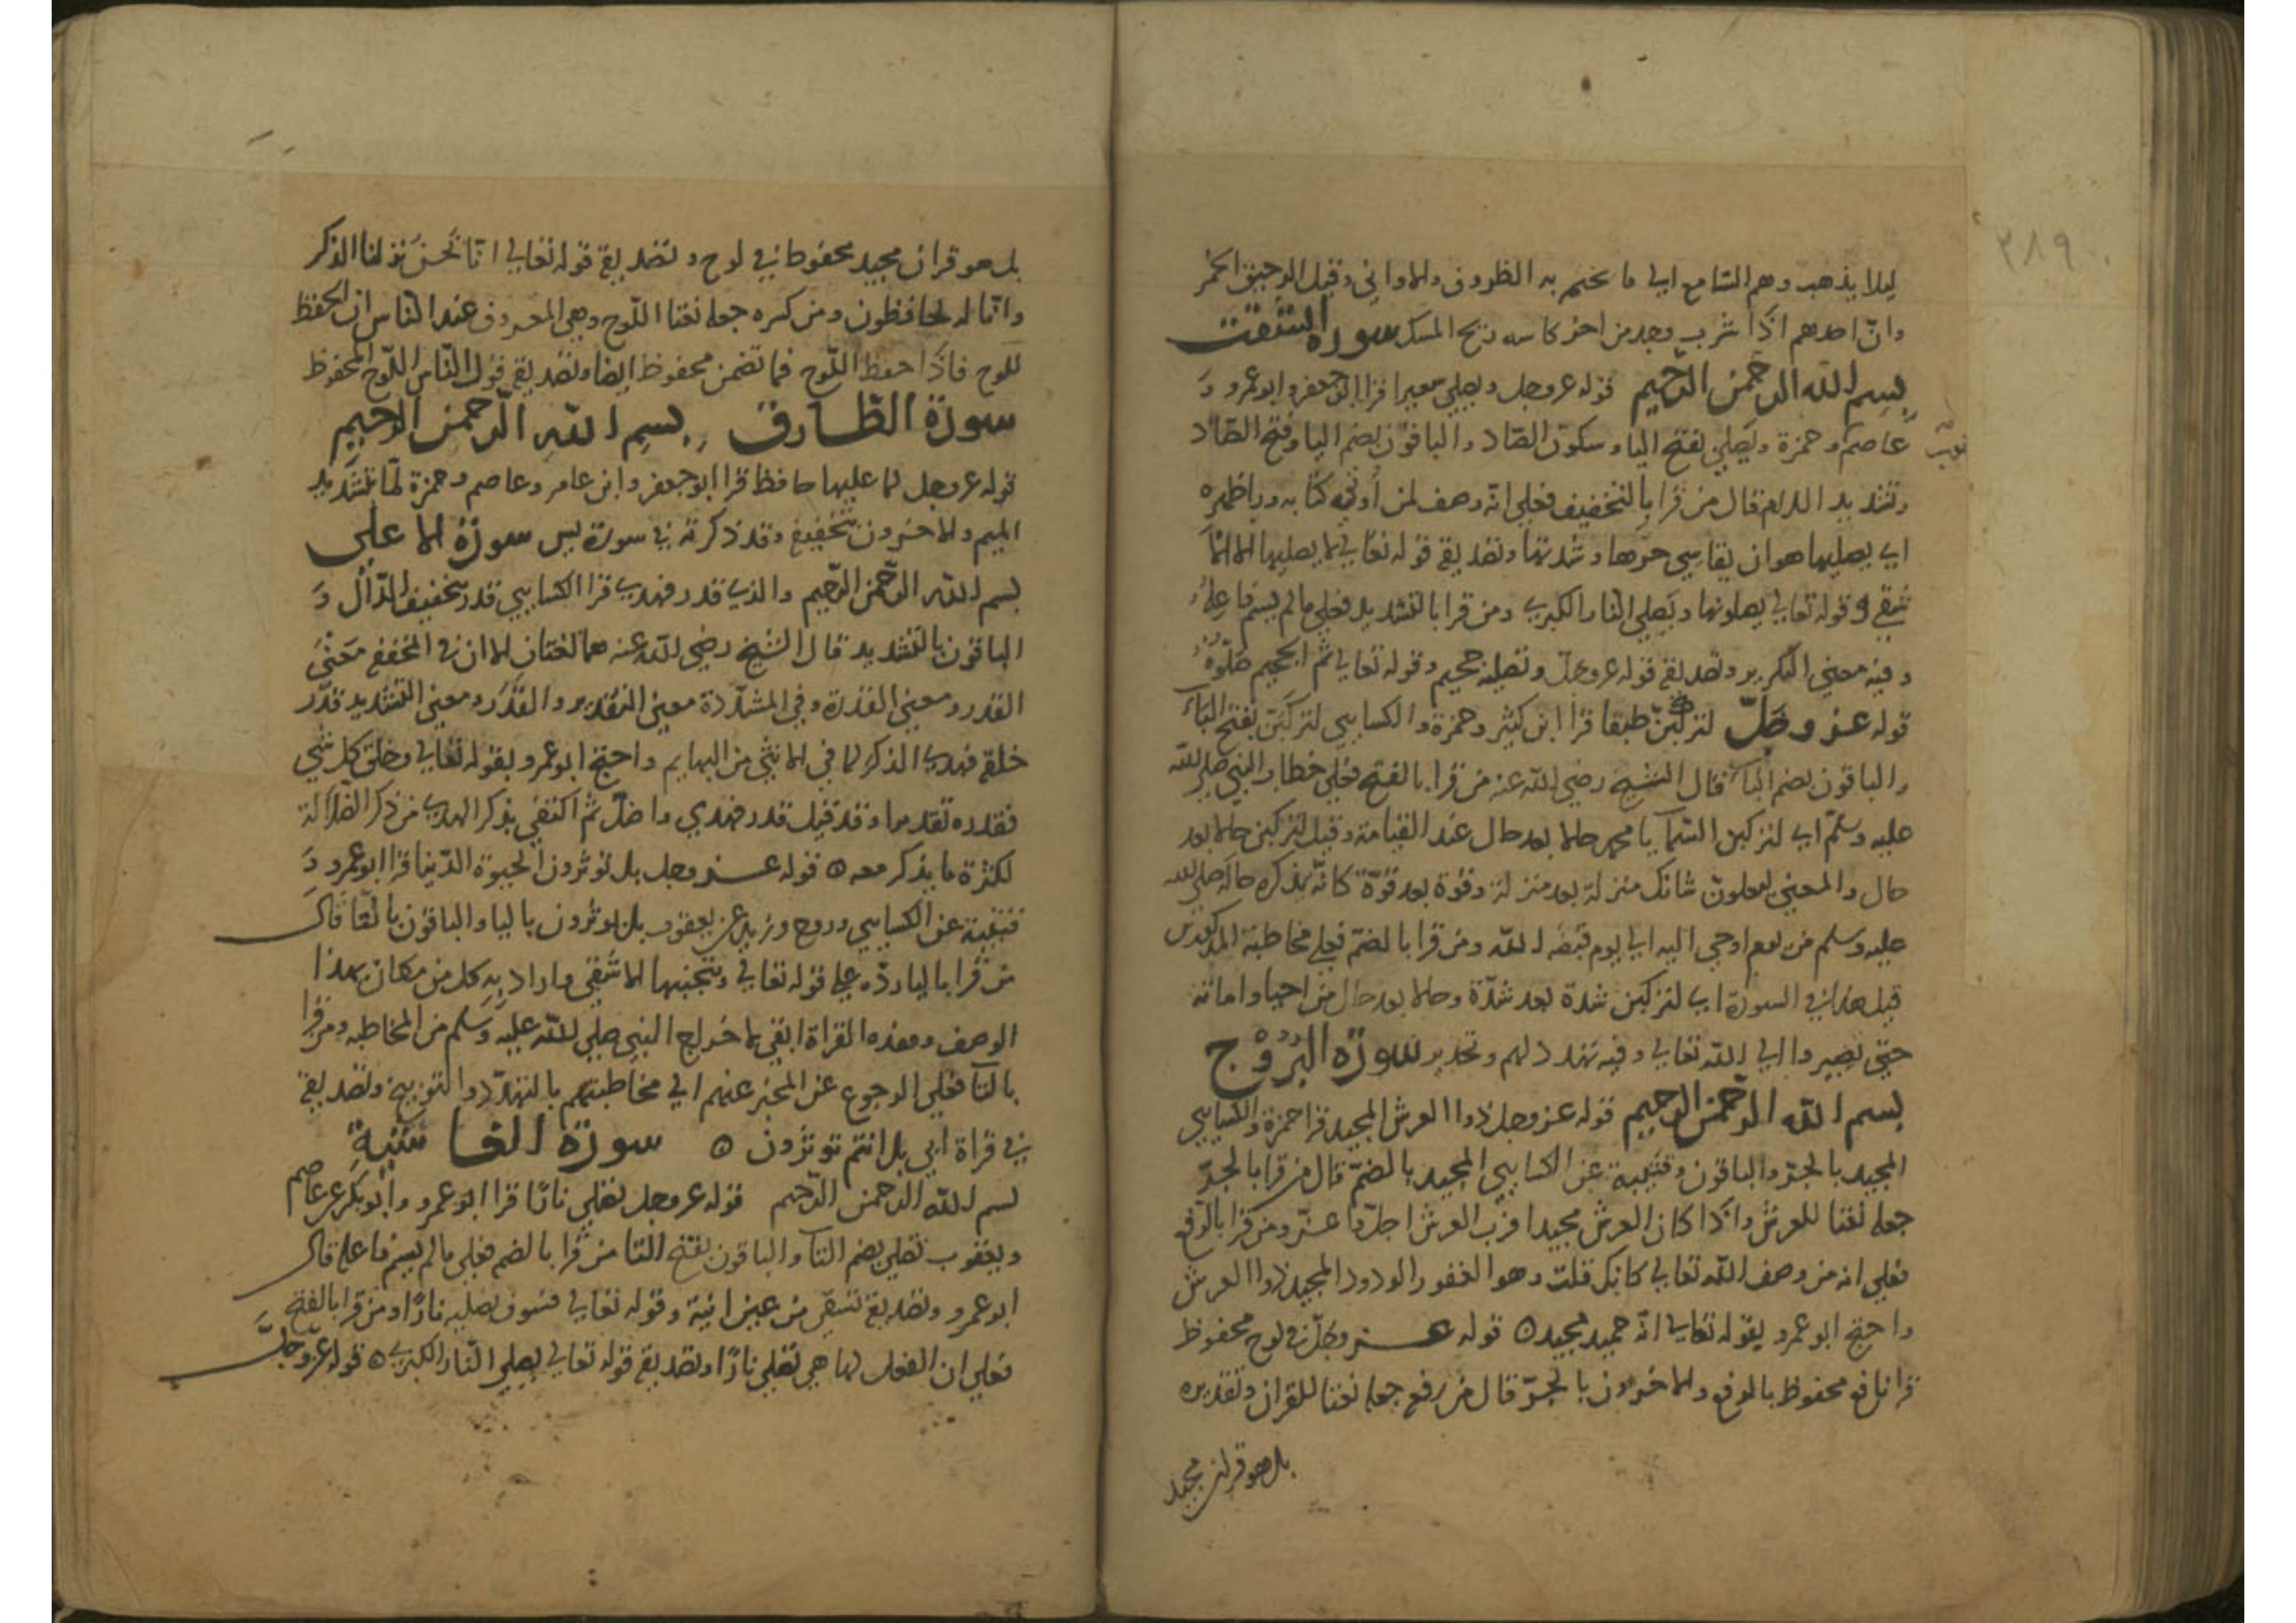 ٢٨٩
ليلا يذهب وهم السامع الي ما يختم به الظروف والاواني وقيل الرحيق الخمر
وانّ احدهم اذا شرب وجد من اخر كاسه ريح المسك سورة انشقت
بسم الله الرحمن الرحيم قوله عز وجل ويصلي سعيرا قرا ابو جعفر وابو عمرو و
عاصم وحمزة ويصلي بفتح اليا وسكون الصاد والباقون بضم اليا وفتح الصّاد
وتشديد اللام قال من قرا بالتخفيف فعلي انّه وصف لمن أوتي كتابه ورا ظهره
اي يصليها هو ان يقاسي حرّها وشدتها وتصديقه قوله تعالي لا يصليها الا الا
شقي وقوله تعالي يصلونها ويصلي النار الكبري ومن قرا بالتشديد فعلي ما لم يسم فاعله
وفيه معني التكرير وتصديقه قوله عز وجلّ وتصلية جحيم وقوله تعالي ثم الجحيم صلّوه
قوله عز وجلّ لتركبنّ طبقا قرا ابن كثير وحمزة والكسايي لتركبن بفتح الباء
والباقون بضم البا قال الشيخ رضي الله عنه من قرا بالفتح فعلي خطاب النبي صلي الله
عليه وسلّم اي لتركبن السّما يا محمد حالا بعد حال عند القيامة وقيل لتركبن حالا بعد
حال والمعني ليعلونّ شانك منزلة بعد منزلة وقوة بعد قوّة كانّه يذكره حاله صلي الله
عليه وسلم من يوم اوحي اليه الي يوم قبضه الله ومن قرا بالضمّ فعلي مخاطبة المذكورين
قبل هذا في السورة اي لتركبن شدة بعد شدّة وحالا بعد حال من احيا واماتة
حتي تصيروا الي الله تعالي وفيه تهدد لهم وتحذير سورة البروج
بسم الله الرحمن الرحيم قوله عز وجل ذوا العرش المجيد قرا حمزة والكسايي
المجيد بالجرّ والباقون وقتيبة عن الكسايي المجيد بالضمّ قال من قرا بالجرّ
جعله نعتا للعرش واذا كان العرش مجيدا فربّ العرش اجلّ واعزّ ومن قرا بالرفع
فعلي انه من وصف الله تعالي كانك قلت وهو الغفور الودود المجيد ذوا العرش
واحتج ابو عمرو بقوله تعالي انّه حميد مجيد ٥ قوله عز وجلّ في لوح محفوظ
قرا نافع محفوظ بالرفع والاخرون بالجرّ قال من رفع جعله نعتا للقران وتقديره
بل هو قران مجيد
بل هو قران مجيد محفوظ في لوح وتصديقه قوله تعالي انا نحن نزلنا الذكر
وانّا له لحافظون ومن كسره جعله نعتا اللّوح وهي المعروف عند النّاس ان الحفظ
للّوح فاذا حفظ اللّوح فما تضمن محفوظ ايضا وتصديقه قول النّاس اللّوح المحفوظ
سورة الطّارق بسم الله الرّحمن الرحيم
قوله عز وجل لما عليها حافظ قرا ابو جعفر وابن عامر وعاصم وحمزة لمّا بتشديد
الميم والاخرون بتخفيف وقد ذكرته في سورة يس سورة الاعلي
بسم الله الرّحمن الرّحيم والذي قدر فهدي قرا الكسايي قدر بتخفيف الدّال و
الباقون بالتشديد قال الشيخ رضي الله عنه هما لغتان الا ان في المخفف معني
القدر ومعني القدرة وفي المشدّدة معني التقدير والقدر ومعني التشديد قدّر
خلقه فهدي الذكر لما في الانثي من البهايم واحتج ابو عمرو بقوله تعالي وخلق كل شي
فقدره تقديرا وقد قيل قدر فهدي واضلّ ثم اكتفي بذكر الهدي من ذكر الضّلالة
لكثرة ما يذكر معه ٥ قوله عز وجل بل توثرون الحيوة الدّنيا قرا ابو عمرو و
قتيبة عن الكسايي وروح وزيد عن يعقوب بل يوثرون باليا والباقون بالتّا قال
من قرا باليا ردّه علي قوله تعالي ويتجنبها الاشقي واراد به كل من كان بهذا
الوصف وهذه القراة ابقي لاخراج النبي صلي الله عليه وسلم من المخاطبه ومن قرا
بالتآ فعلي الرجوع عن المخبر عنهم الي مخاطبتهم بالتهدّد والتوبيخ وتصديقه
في قراة ابي بل انتم توثرون ٥ سورة الغاشية
بسم الله الرحمن الرّحيم قوله عز وجل تصلي نارًا قرا ابو عمرو وابو بكر عن عاصم
ويعقوب تصلي بضم التآ والباقون بفتح التا من قرا بالضم فعلي ما لم يسم فاعله قال
ابو عمرو وتصديقه تسقي من عين انية وقوله تعالي فسوف نصليه نارًا ومن قرا بالفتح
فعلي ان الفعل لها هي تصلي نارًا وتصديقه قوله تعالي يصلي النّار الكبري ٥ قوله عزّ وجلّ